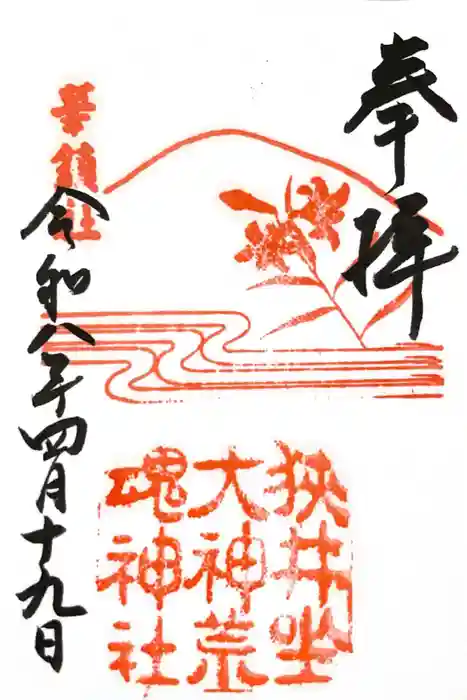 奉拝
狭井坐
大神荒
魂神社
華鎮社
令和八年四月十九日